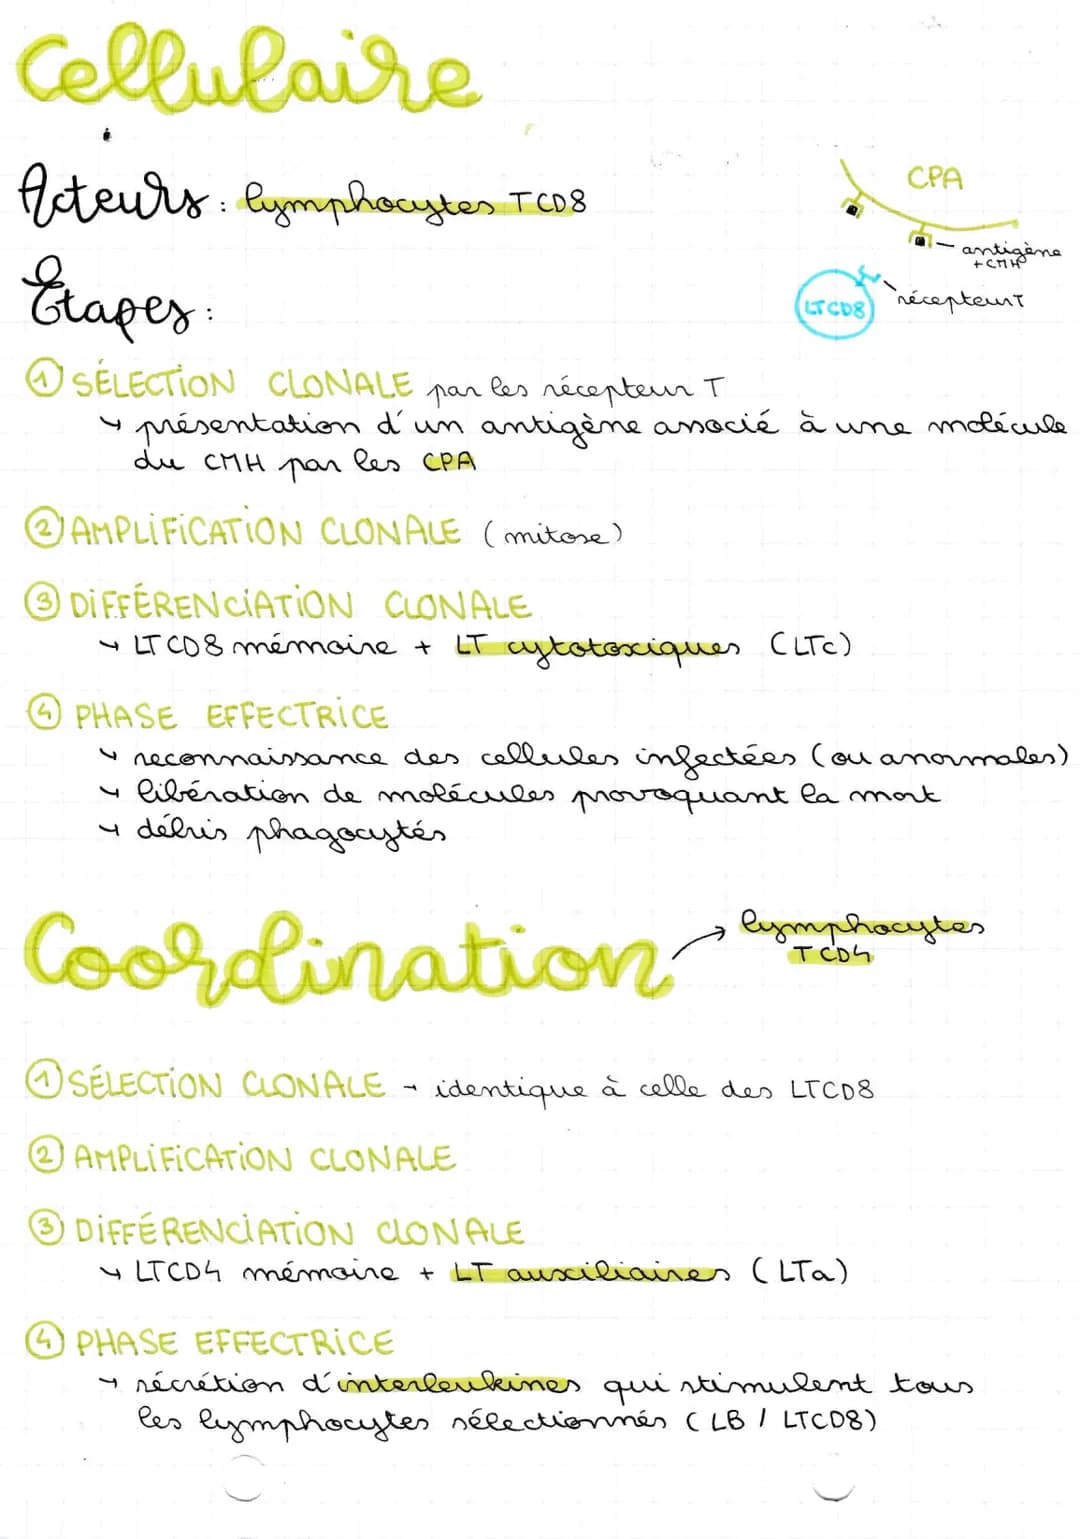 Cellulaire
Acteurs : lymphocytes TCD8
CPA
antigène
+CMH
LTCD8
récepteur T
Étapes :
① SÉLECTION CLONALE par les récepteur T
↳ présentation d'un antigène associé à une molécule
du CMH par les CPA
② AMPLIFICATION CLONALE (mitose)
③ DIFFÉRENCIATION CLONALE
↳ LTCD8 mémoire + LT cytotoxiques (LTc)
④ PHASE EFFECTRICE
↳ reconnaissance des cellules infectées (ou anormales)
↳ libération de molécules provoquant la mort
↳ débris phagocytés
Coordination → lymphocytes
TCD4
① SÉLECTION CLONALE → identique à celle des LTCD8
② AMPLIFICATION CLONALE
③ DIFFÉRENCIATION CLONALE
↳ LTCD4 mémoire + LT auxiliaires (LTa)
④ PHASE EFFECTRICE
→ sécrétion d'interleukines qui stimulent tous
les lymphocytes sélectionnés (LB / LTCD8)